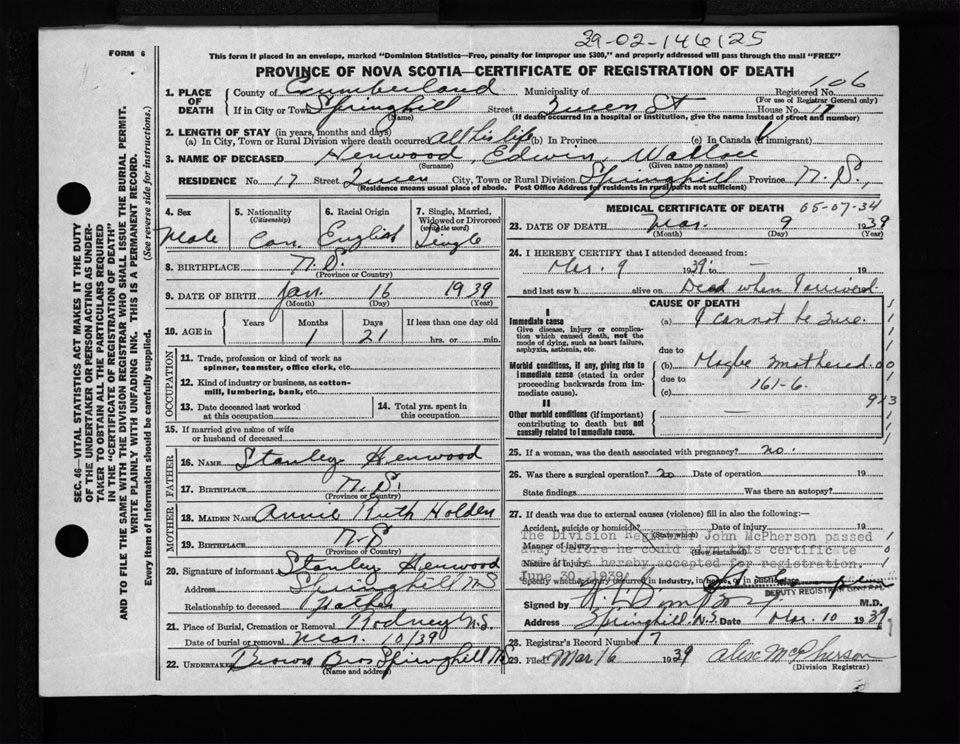 29-02-146125
FORM 6
This form if placed in an envelope, marked "Dominion Statistics—Free, penalty for improper use $300," and properly addressed will pass through the mail "FREE"
PROVINCE OF NOVA SCOTIA—CERTIFICATE OF REGISTRATION OF DEATH
SEC. 46—VITAL STATISTICS ACT MAKES IT THE DUTY
OF THE UNDERTAKER OR PERSON ACTING AS UNDER-
TAKER TO OBTAIN ALL THE PARTICULARS REQUIRED
IN THE "CERTIFICATE OF REGISTRATION OF DEATH"
AND TO FILE THE SAME WITH THE DIVISION REGISTRAR WHO SHALL ISSUE THE BURIAL PERMIT.
WRITE PLAINLY WITH UNFADING INK. THIS IS A PERMANENT RECORD.
Every item of information should be carefully supplied. (See reverse side for instructions.)
1. PLACE OF DEATH County of Cumberland Municipality of Registered No. 106
(For use of Registrar General only)
If in City or Town Springhill Street Queen St House No. 17
(Name) (If death occurred in a hospital or institution, give the name instead of street and number)
2. LENGTH OF STAY (in years, months and days)
(a) In City, Town or Rural Division where death occurred all his life (b) In Province (c) In Canada (if immigrant)
3. NAME OF DECEASED Henwood, Edwin, Wallace
(Surname) (Given name or names)
RESIDENCE No. 17 Street Queen City, Town or Rural Division Springhill Province N.S.,
(Residence means usual place of abode. Post Office Address for residents in rural parts not sufficient)
4. Sex Male
5. Nationality (Citizenship) Can.
6. Racial Origin English
7. Single, Married, Widowed or Divorced (write the word) Single
8. BIRTHPLACE N.S.
(Province or Country)
9. DATE OF BIRTH Jan. 16 1939
(Month) (Day) (Year)
10. AGE in Years Months 1 Days 21 If less than one day old hrs. or min.
OCCUPATION
11. Trade, profession or kind of work as spinner, teamster, office clerk, etc.
12. Kind of industry or business, as cotton-mill, lumbering, bank, etc.
13. Date deceased last worked at this occupation
14. Total yrs. spent in this occupation
15. If married give name of wife or husband of deceased
FATHER
16. NAME Stanley Henwood
17. BIRTHPLACE N.S.
(Province or Country)
MOTHER
18. MAIDEN NAME Annie Ruth Holden
19. BIRTHPLACE N.S
(Province or Country)
20. Signature of informant Stanley Henwood
Address Springhill N.S
Relationship to deceased Father
21. Place of Burial, Cremation or Removal Rodney N.S.
Date of burial or removal Mar. 10/39
22. UNDERTAKER Brown Bros Springhill N.S
(Name and address)
MEDICAL CERTIFICATE OF DEATH 05-07-34
23. DATE OF DEATH Mar. 9 1939
(Month) (Day) (Year)
24. I HEREBY CERTIFY that I attended deceased from:
Mar. 9 1939 to — 19
and last saw h alive on Dead when I arrived
CAUSE OF DEATH
I
Immediate cause
Give disease, injury or complication which caused death, not the mode of dying, such as heart failure, asphyxia, asthenia, etc.
(a) I cannot be sure.
due to
Morbid conditions, if any, giving rise to immediate cause (stated in order proceeding backwards from immediate cause).
(b) Maybe smothered.
due to
(c) 161-6.
913
II
Other morbid conditions (if important) contributing to death but not causally related to immediate cause.
25. If a woman, was the death associated with pregnancy? no.
26. Was there a surgical operation? no Date of operation
State findings Was there an autopsy?
27. If death was due to external causes (violence) fill in also the following:—
Accident, suicide or homicide? Date of injury 19
(State which)
The Division Registrar John McPherson passed
away before he could sign this certificate
and is hereby accepted for registration.
June 30, 1939.
Manner of injury
(How sustained)
Nature of injury
Specify whether injury occurred in industry, in home, or in public place
DEPUTY REGISTRAR GENERAL
Signed by M.D.
Address Springhill, N.S. Date Mar. 10 1939
28. Registrar's Record Number 7
29. Filed Mar 16 1939 Alex McPherson
(Division Registrar)